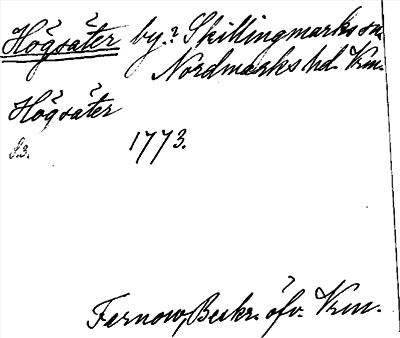 Högsäter by? Skillingmarks sn.
Nordmarks hd. Vrm.
Högsäter
S.3. 1773.
Fernow, Beskr. öfv. Vrm.